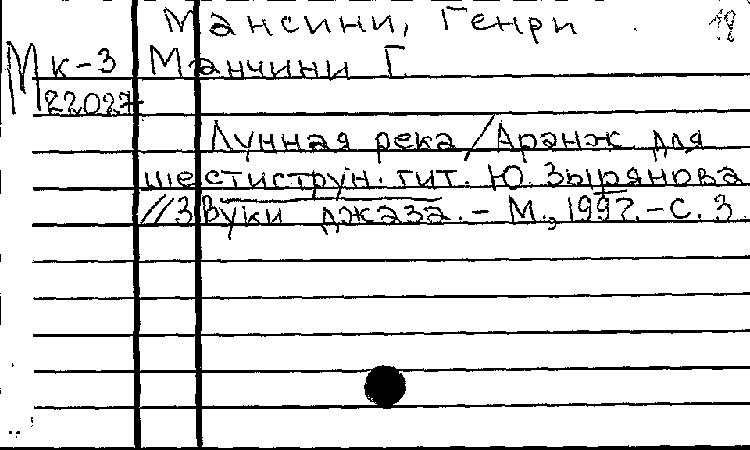 Мансини, Генри 18
М к-3 Манчини Г.
22027
Лунная река / Аранж для
шестиструн. гит. Ю. Зырянова
// Звуки джаза. – М., 1997. – С. 3.